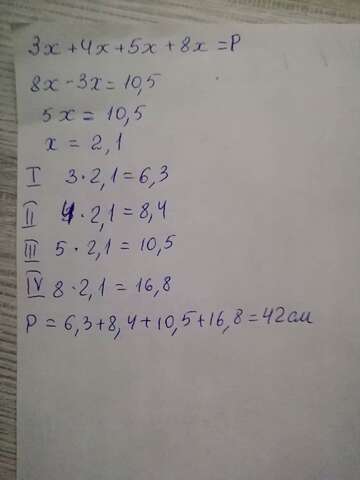 3x+4x+5x+8x=P
8x-3x=10,5
5x=10,5
x=2,1
I 3·2,1=6,3
II 4·2,1=8,4
III 5·2,1=10,5
IV 8·2,1=16,8
P=6,3+8,4+10,5+16,8=42см